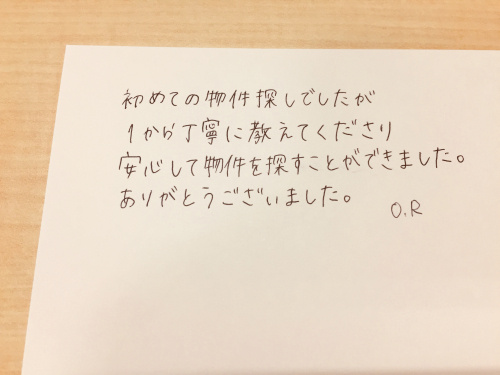 初めての物件探しでしたが
1から丁寧に教えてくださり
安心して物件を探すことができました。
ありがとうございました。
O.R